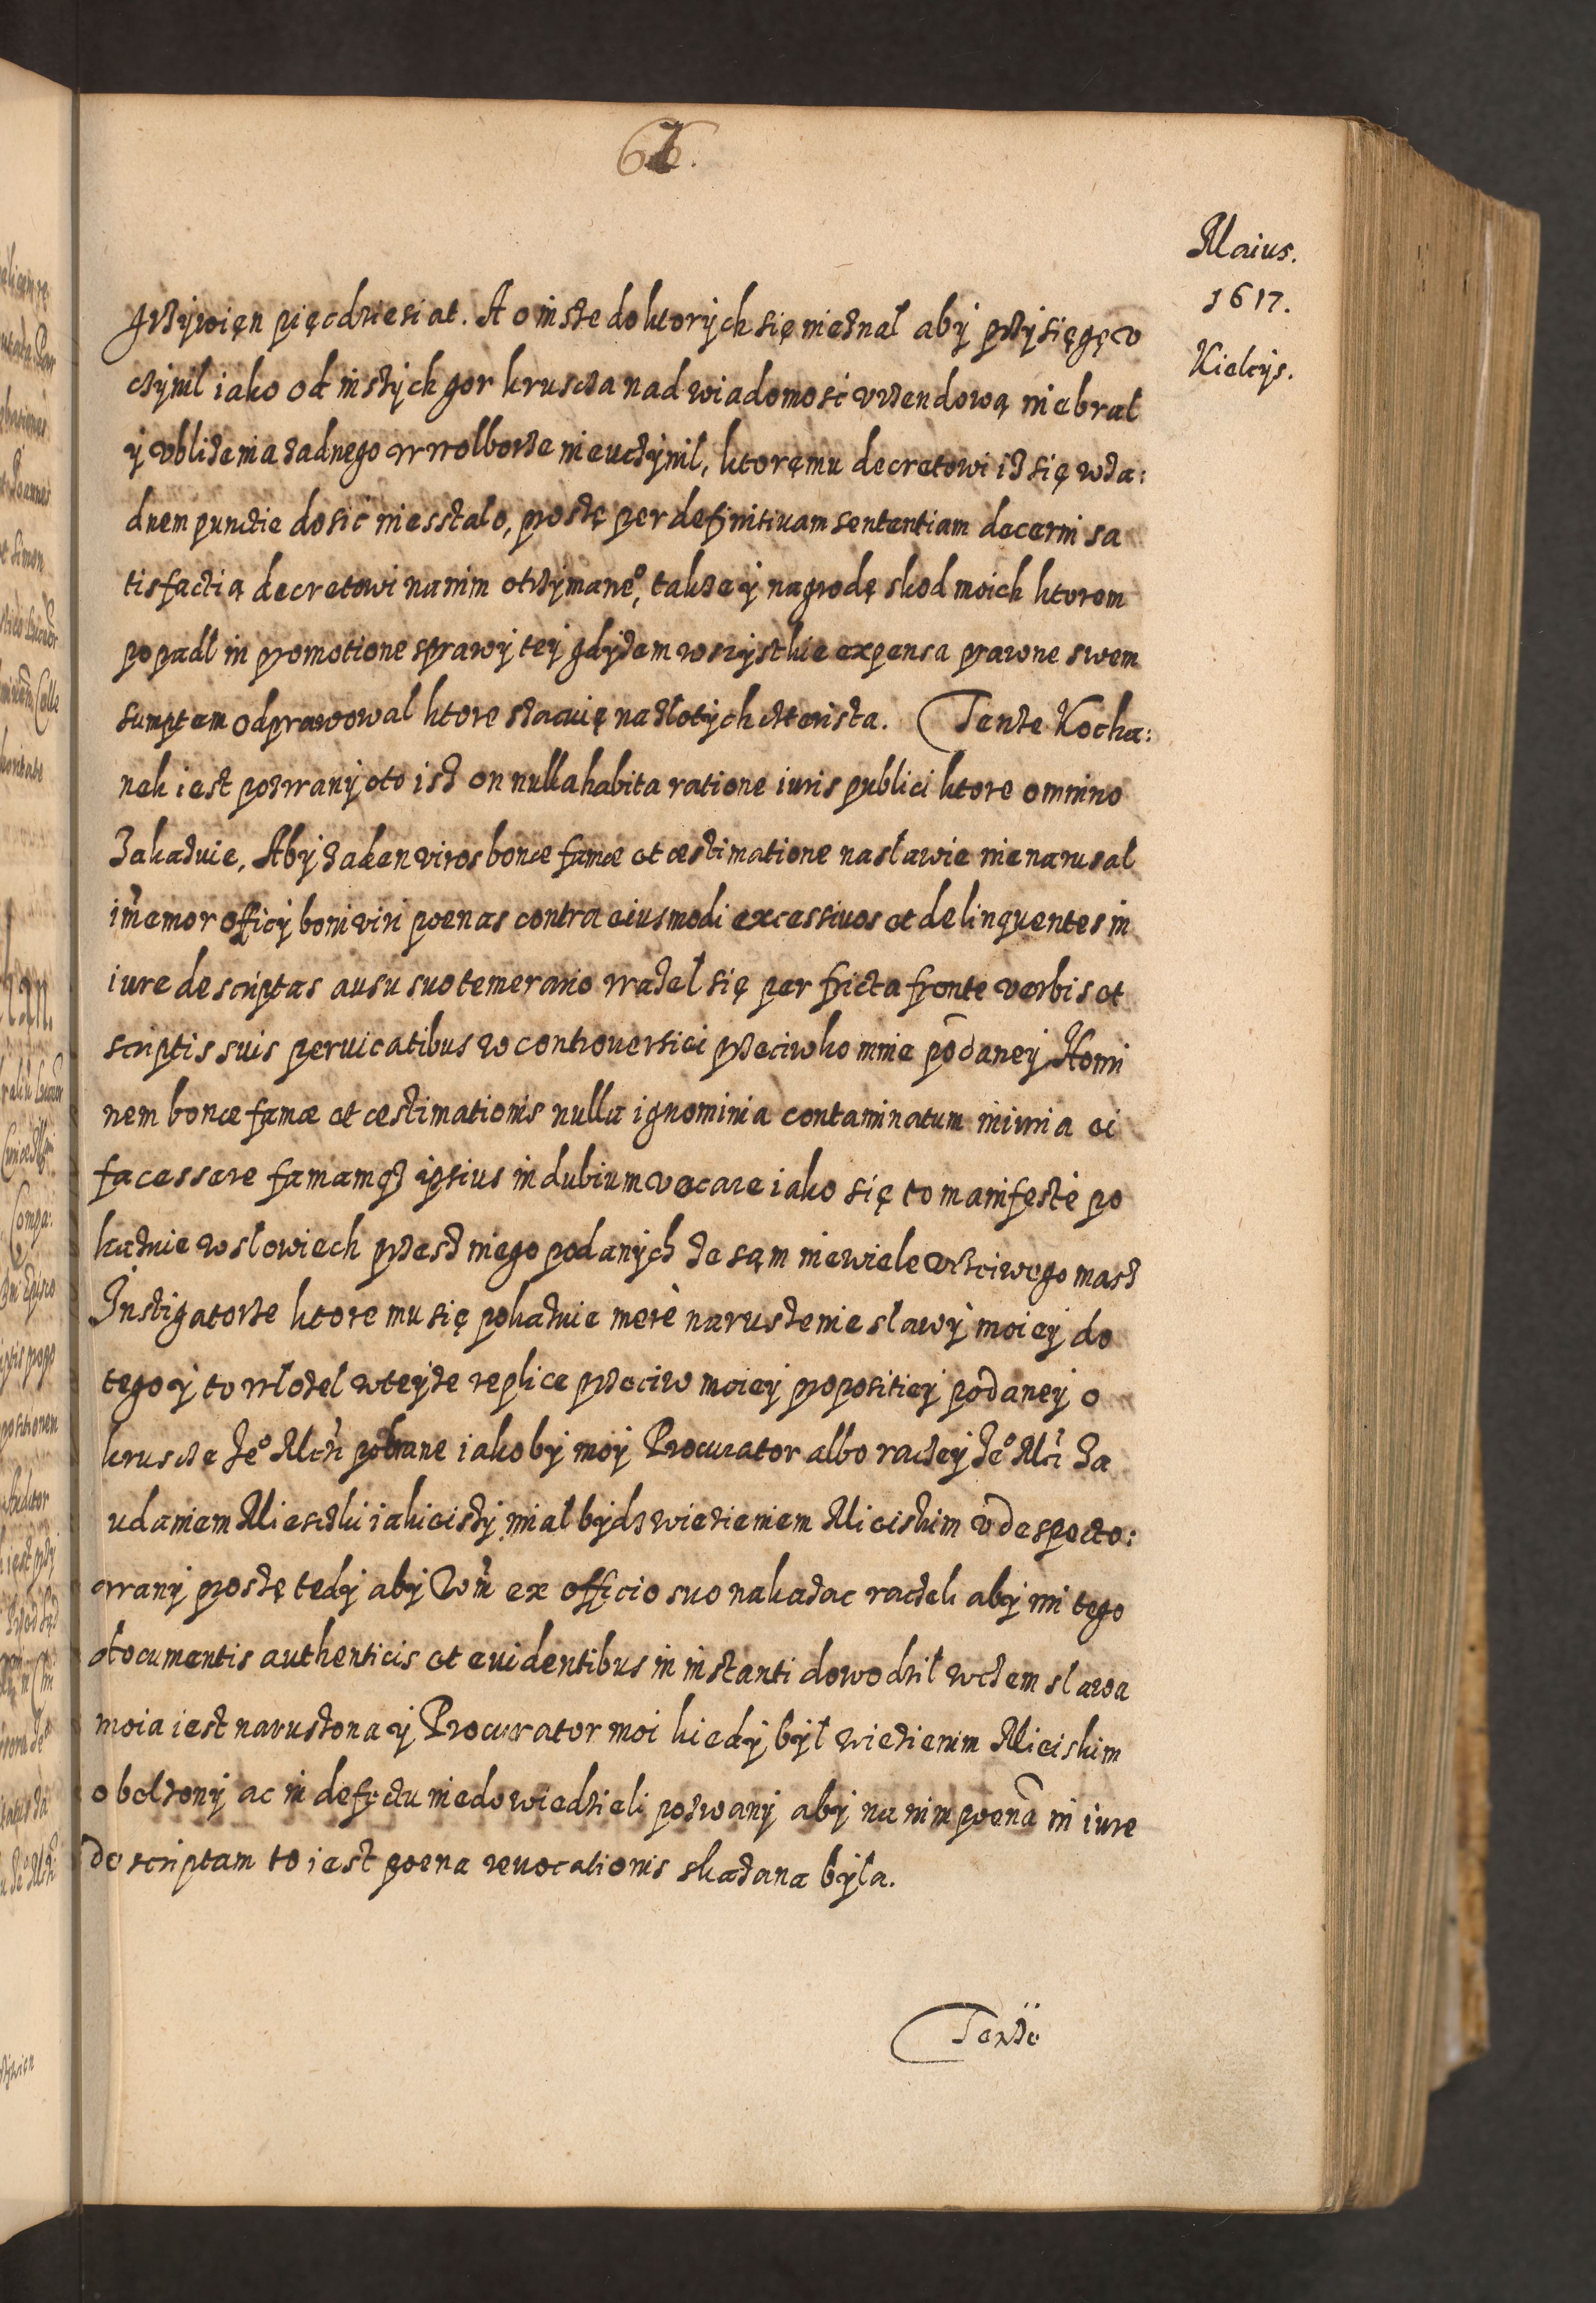 61.
Maius.
1617.
Kielcys.
grzywięn pięcdziesiat. A o insze do ktorych się nieznal aby przysięgę v
czynil iako od inszych gor kruscza nad wiadomosc vrzendową niebral
y vbliżenia żadnego w wolborze nieuczynil, ktoręmu decretowi iż się wża:
dnem punctie dosić niesstalo, proszę per definitiuam sententiam decerni sa
tisfactią decretowi na nim otrzymane°, takze y nagrodę skod moich ktorem
popadl in promotione sprawy tey gdyżem wszystkie expensa prawne swem
sumptem odprawowal ktore szacuię na zlotych czterista. Tenże Kocha:
nek iest pozwany oto isz on nulla habita ratione iuris publici ktore omnino
Zakazuie, Aby żaden viros bonæ famæ et æstimatione na sławie nienarusał
im̃emor officÿ boni viri poenas contra eiusmodi excessiuos et delinquentes in
iure descriptas ausu suo temerario ważeł się per fricta fronte verbis et
scriptis suis peruicatibus w controuersiei przeciwko mnie podaney Homi
nem bonæ famæ et æstimationis nulla ignominia contaminatum iniuria ei
facessere famamqz ipsius in dubium vocare iako się to manifestè po
kazuie w słowiech przesz niego podanych że sąm niewiele vcciwego masz
Instigatorze ktore mu się pokazuie merè naruszenie sławy moiey do
tego y to włożeł w teyże replice przeciw moiey propositiey podaney o
kruscze Je° Mci pobrane iakoby moy Procurator albo raczey Je° Mci za
udaniem Miesczki iakieiszy mial bydz wiezieniem Mieiskim vdespecto:
wany proszę tedy aby Wm̃ ex officio suo nakazac raczeli aby mi tego
documentis authenticis et euidentibus in instanti dowodzil w czem sława
moia iest naruszona y Procurator moi kiedy był wiezienim Mieiskim
obelzony ac in defectu niedowiedzieli pozwany aby na nim poenã in iure
de scriptam to iest poena reuocationis skazana była.
Tenże